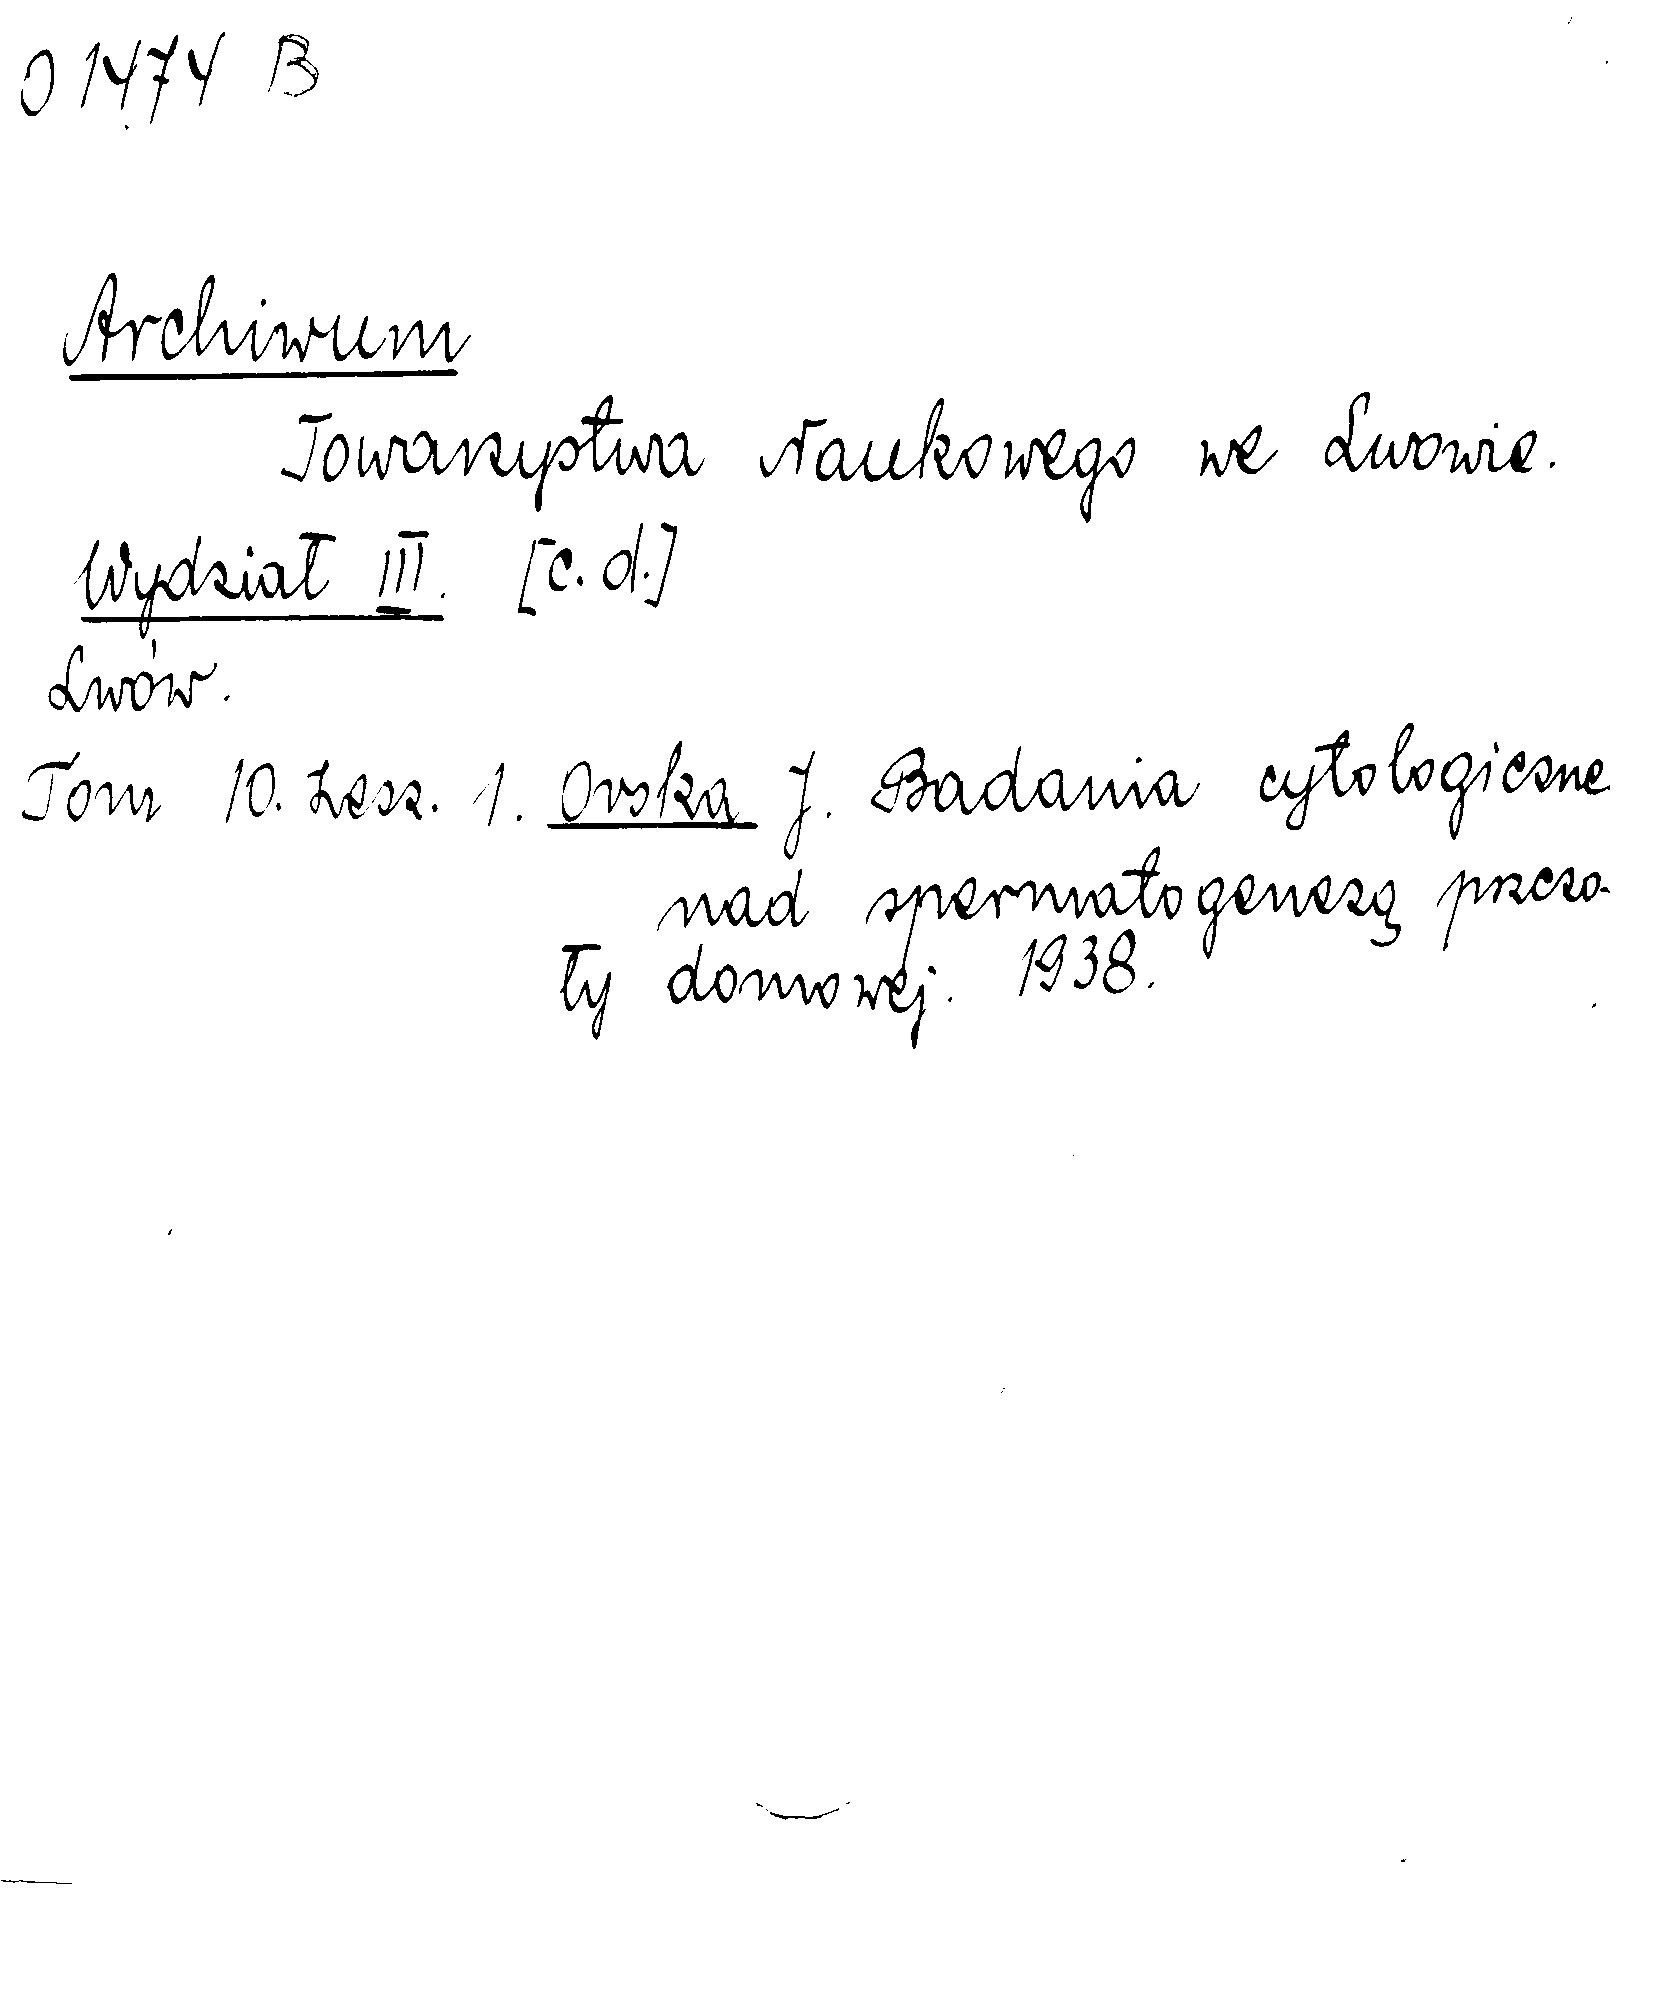 O 1474 B
Archiwum
Towarzystwa Naukowego we Lwowie.
Wydział III. [c.d.]
Lwów.
Tom 10. Zesz. 1. Orska J. Badania cytologiczne
nad spermatogenezą pszczo-
ły domowej. 1938.